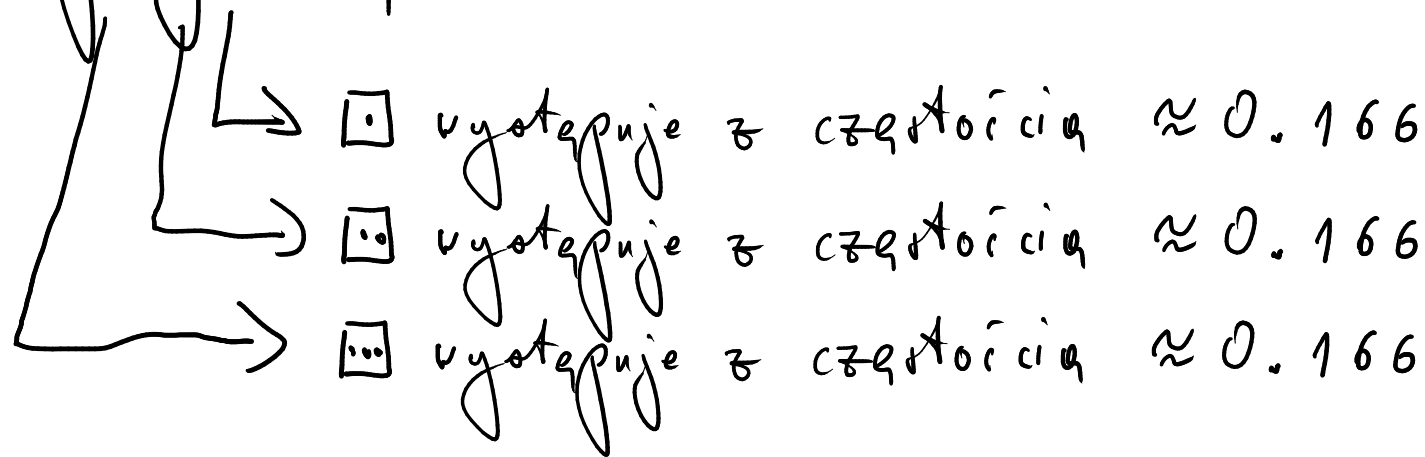 ⚀ występuje z częstością ≈ 0.166
⚁ występuje z częstością ≈ 0.166
⚂ występuje z częstością ≈ 0.166